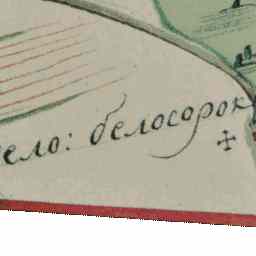 ело: белосорок